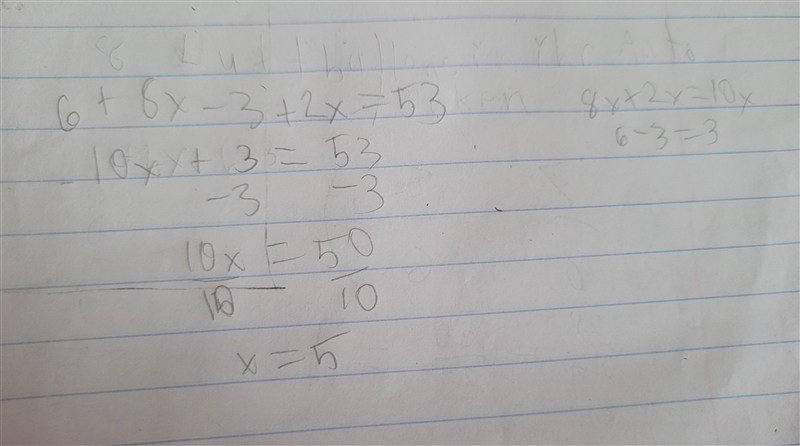 6 + 8x - 3 + 2x = 53
8x + 2x = 10x
6 - 3 = 3
10x + 3 = 53
-3 -3
10x = 50
10 10
x = 5